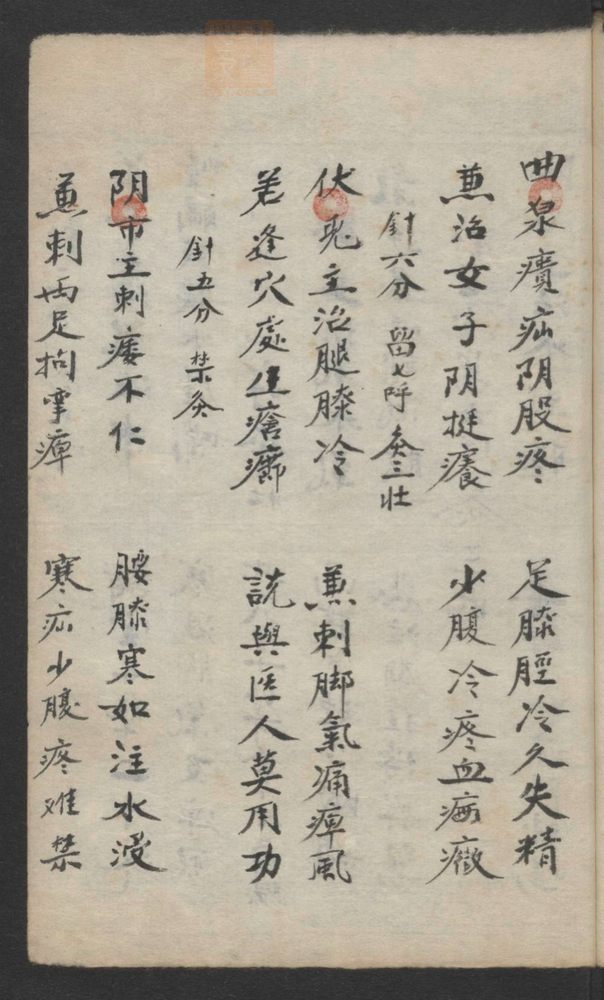 曲泉㿉疝阴股疼　足膝脛冷久失精
兼治女子阴挺癢　少腹冷疼血病癥
針六分　留七呼　灸三壮
伏兎主治腿膝冷　兼刺脚氣痛痺風
若逢穴處生瘡癤　説與医人莫用功
針五分　禁灸
阴市主刺痿不仁　腰膝寒如注水浸
兼刺両足拘挛痺　寒疝少腹疼难禁